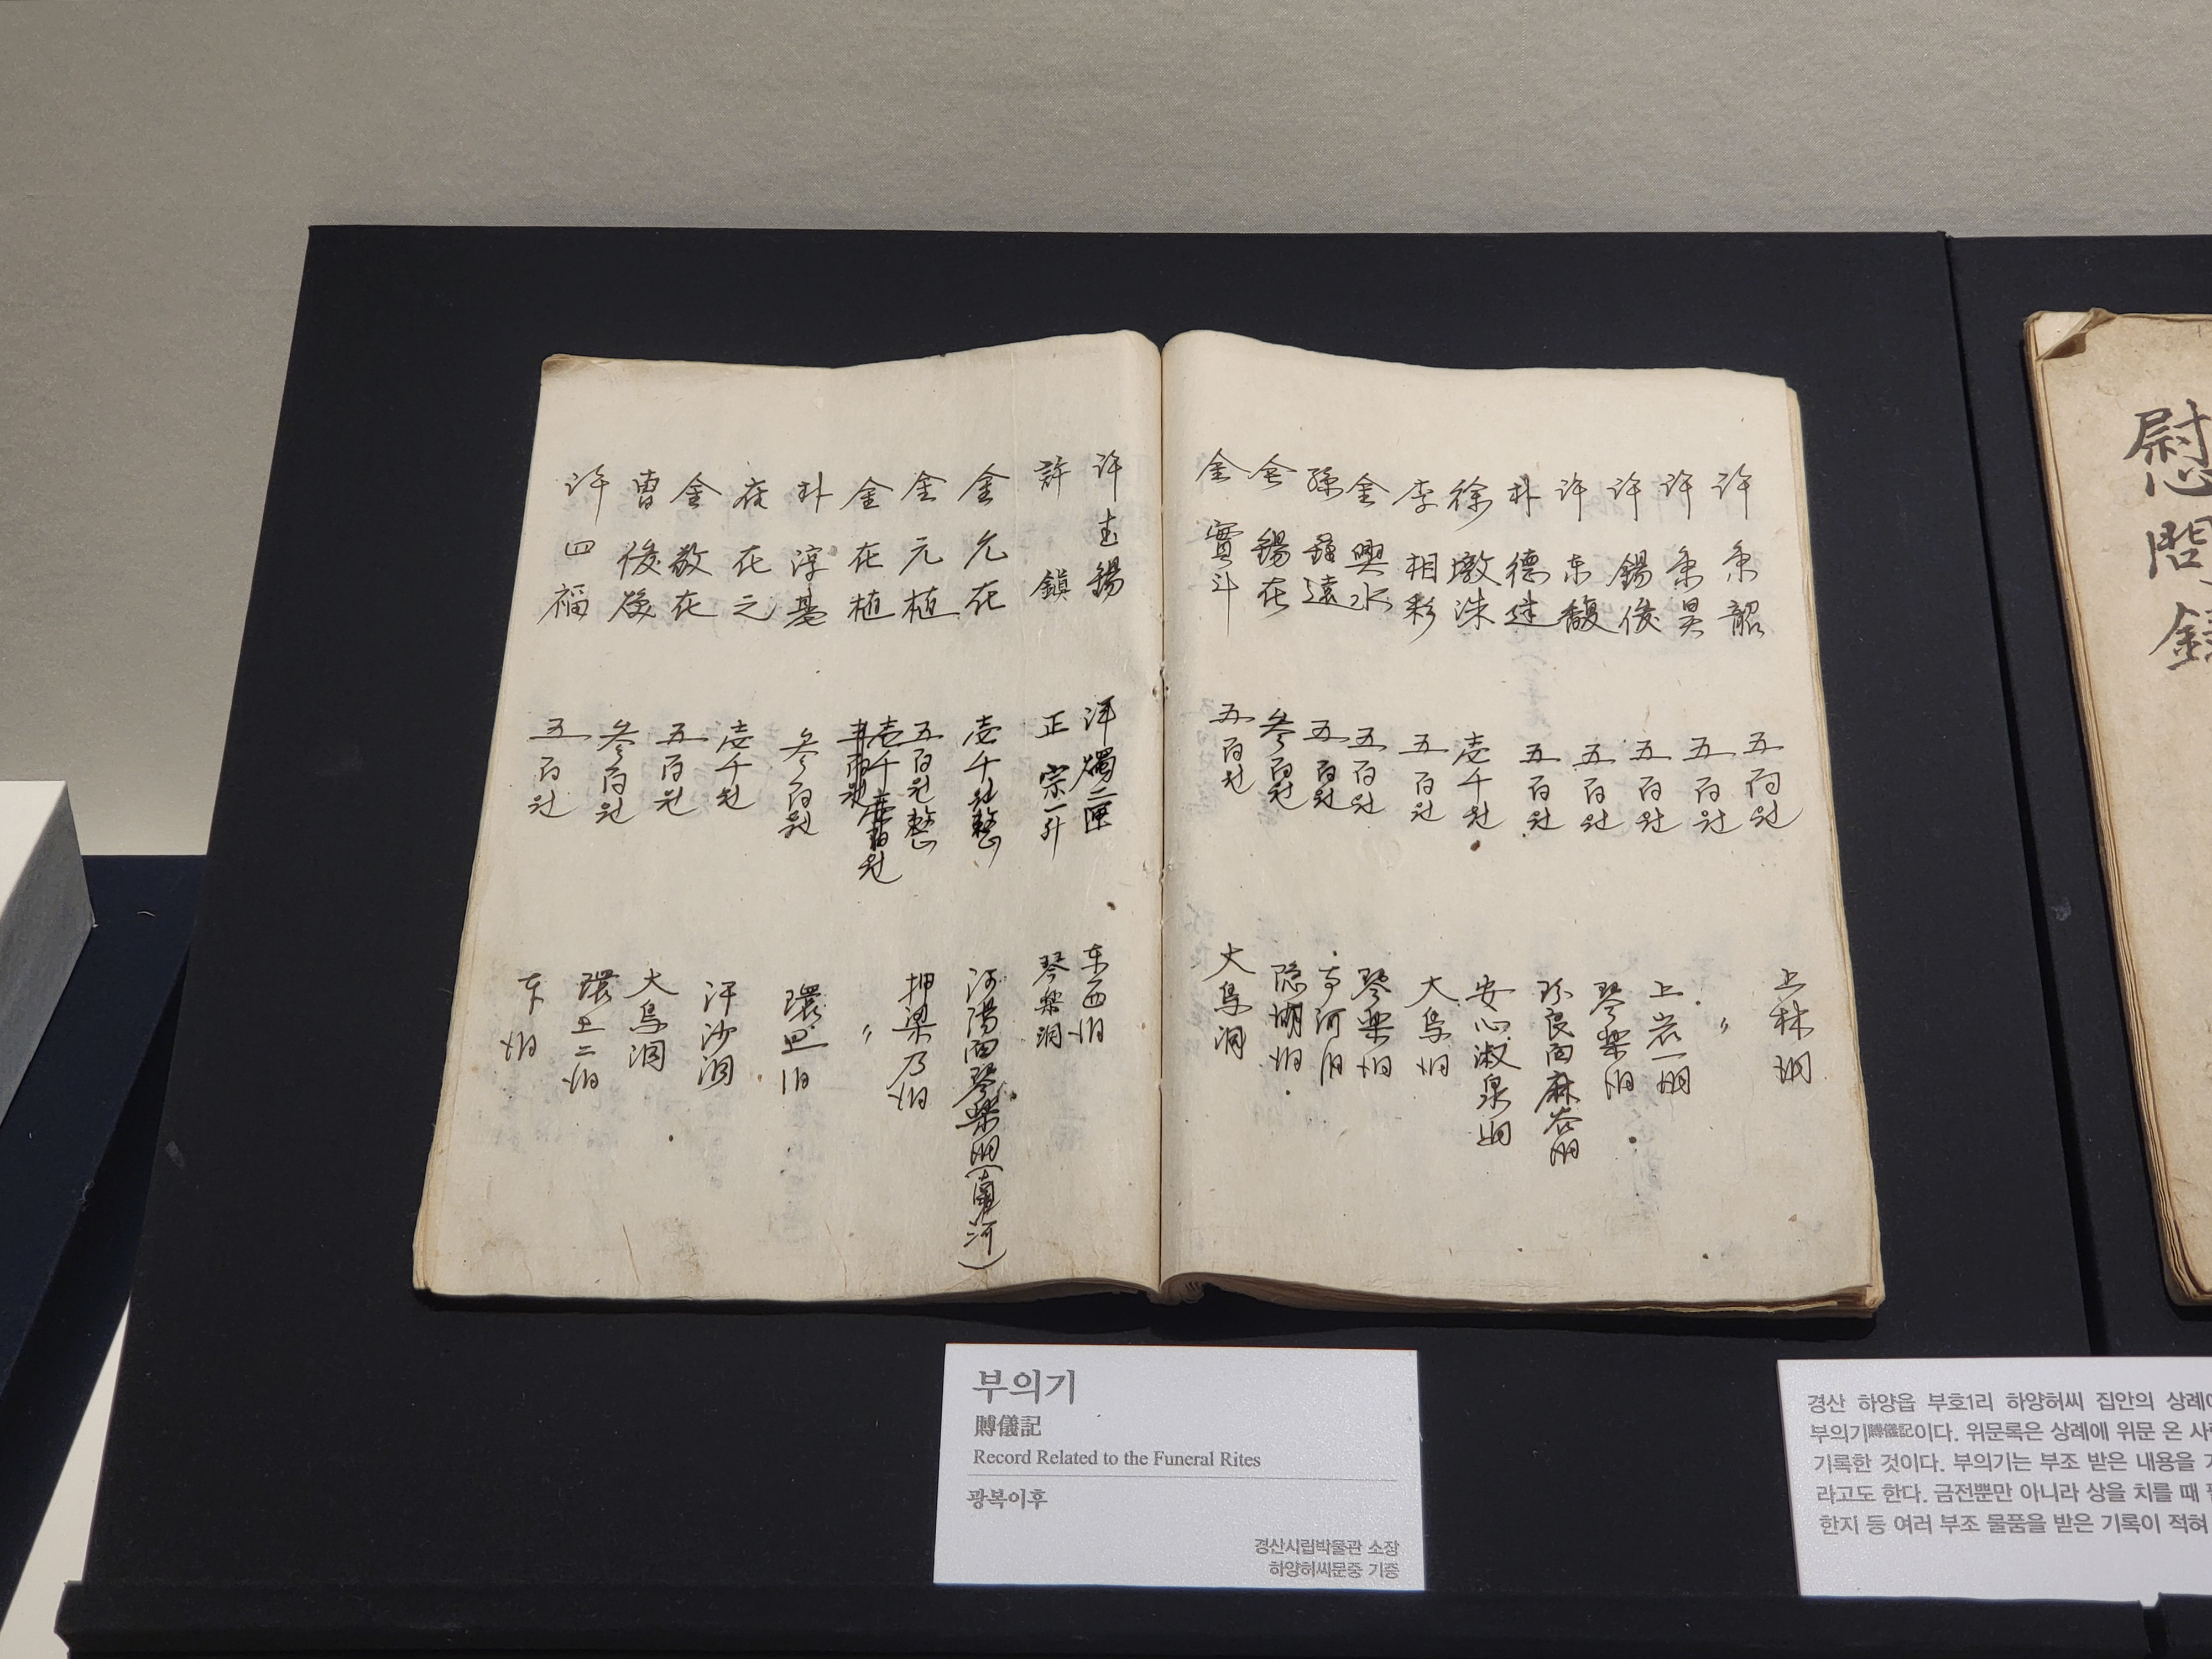 許 秉韶 五百원 上林洞
許 秉昊 五百원 〃
許 錫俊 五百원 上岩一洞
許 东馥 五百원 琴樂洞
朴 德達 五百원 珍良面麻谷洞
徐 墩洙 壱千원 安心淑泉洞
李 相彩 五百원 大鳥洞
金 興水 五百원 琴樂洞
孫 鍾遠 五百원
金 錫在 参百원 隐湖洞
金 實斗 五百원 大鳥洞
许 錫 洋燭二匣 东西洞
許 鎮 正宗一升 琴樂洞
金 允在 壱千원整 河陽面琴樂洞(南河)
金 元植 五百원整 押梁乃洞
金 在植 〃
朴 淳基 参百원 環上洞
在之 壱千원 汗沙洞
金 敎在 五百원 大鳥洞
曺 俊 参百원 環上二洞
许 四福 五百원 东洞
慰問錄
부의기
賻儀記
Record Related to the Funeral Rites
광복이후
경산시립박물관 소장
하양허씨문중 기증
경산 하양읍 부호1리 하양허씨 집안의 상례에
부의기賻儀記이다. 위문록은 상례에 위문 온
기록한 것이다. 부의기는 부조 받은 내용을
라고도 한다. 금전뿐만 아니라 상을 치를 때
한지 등 여러 부조 물품을 받은 기록이 적혀